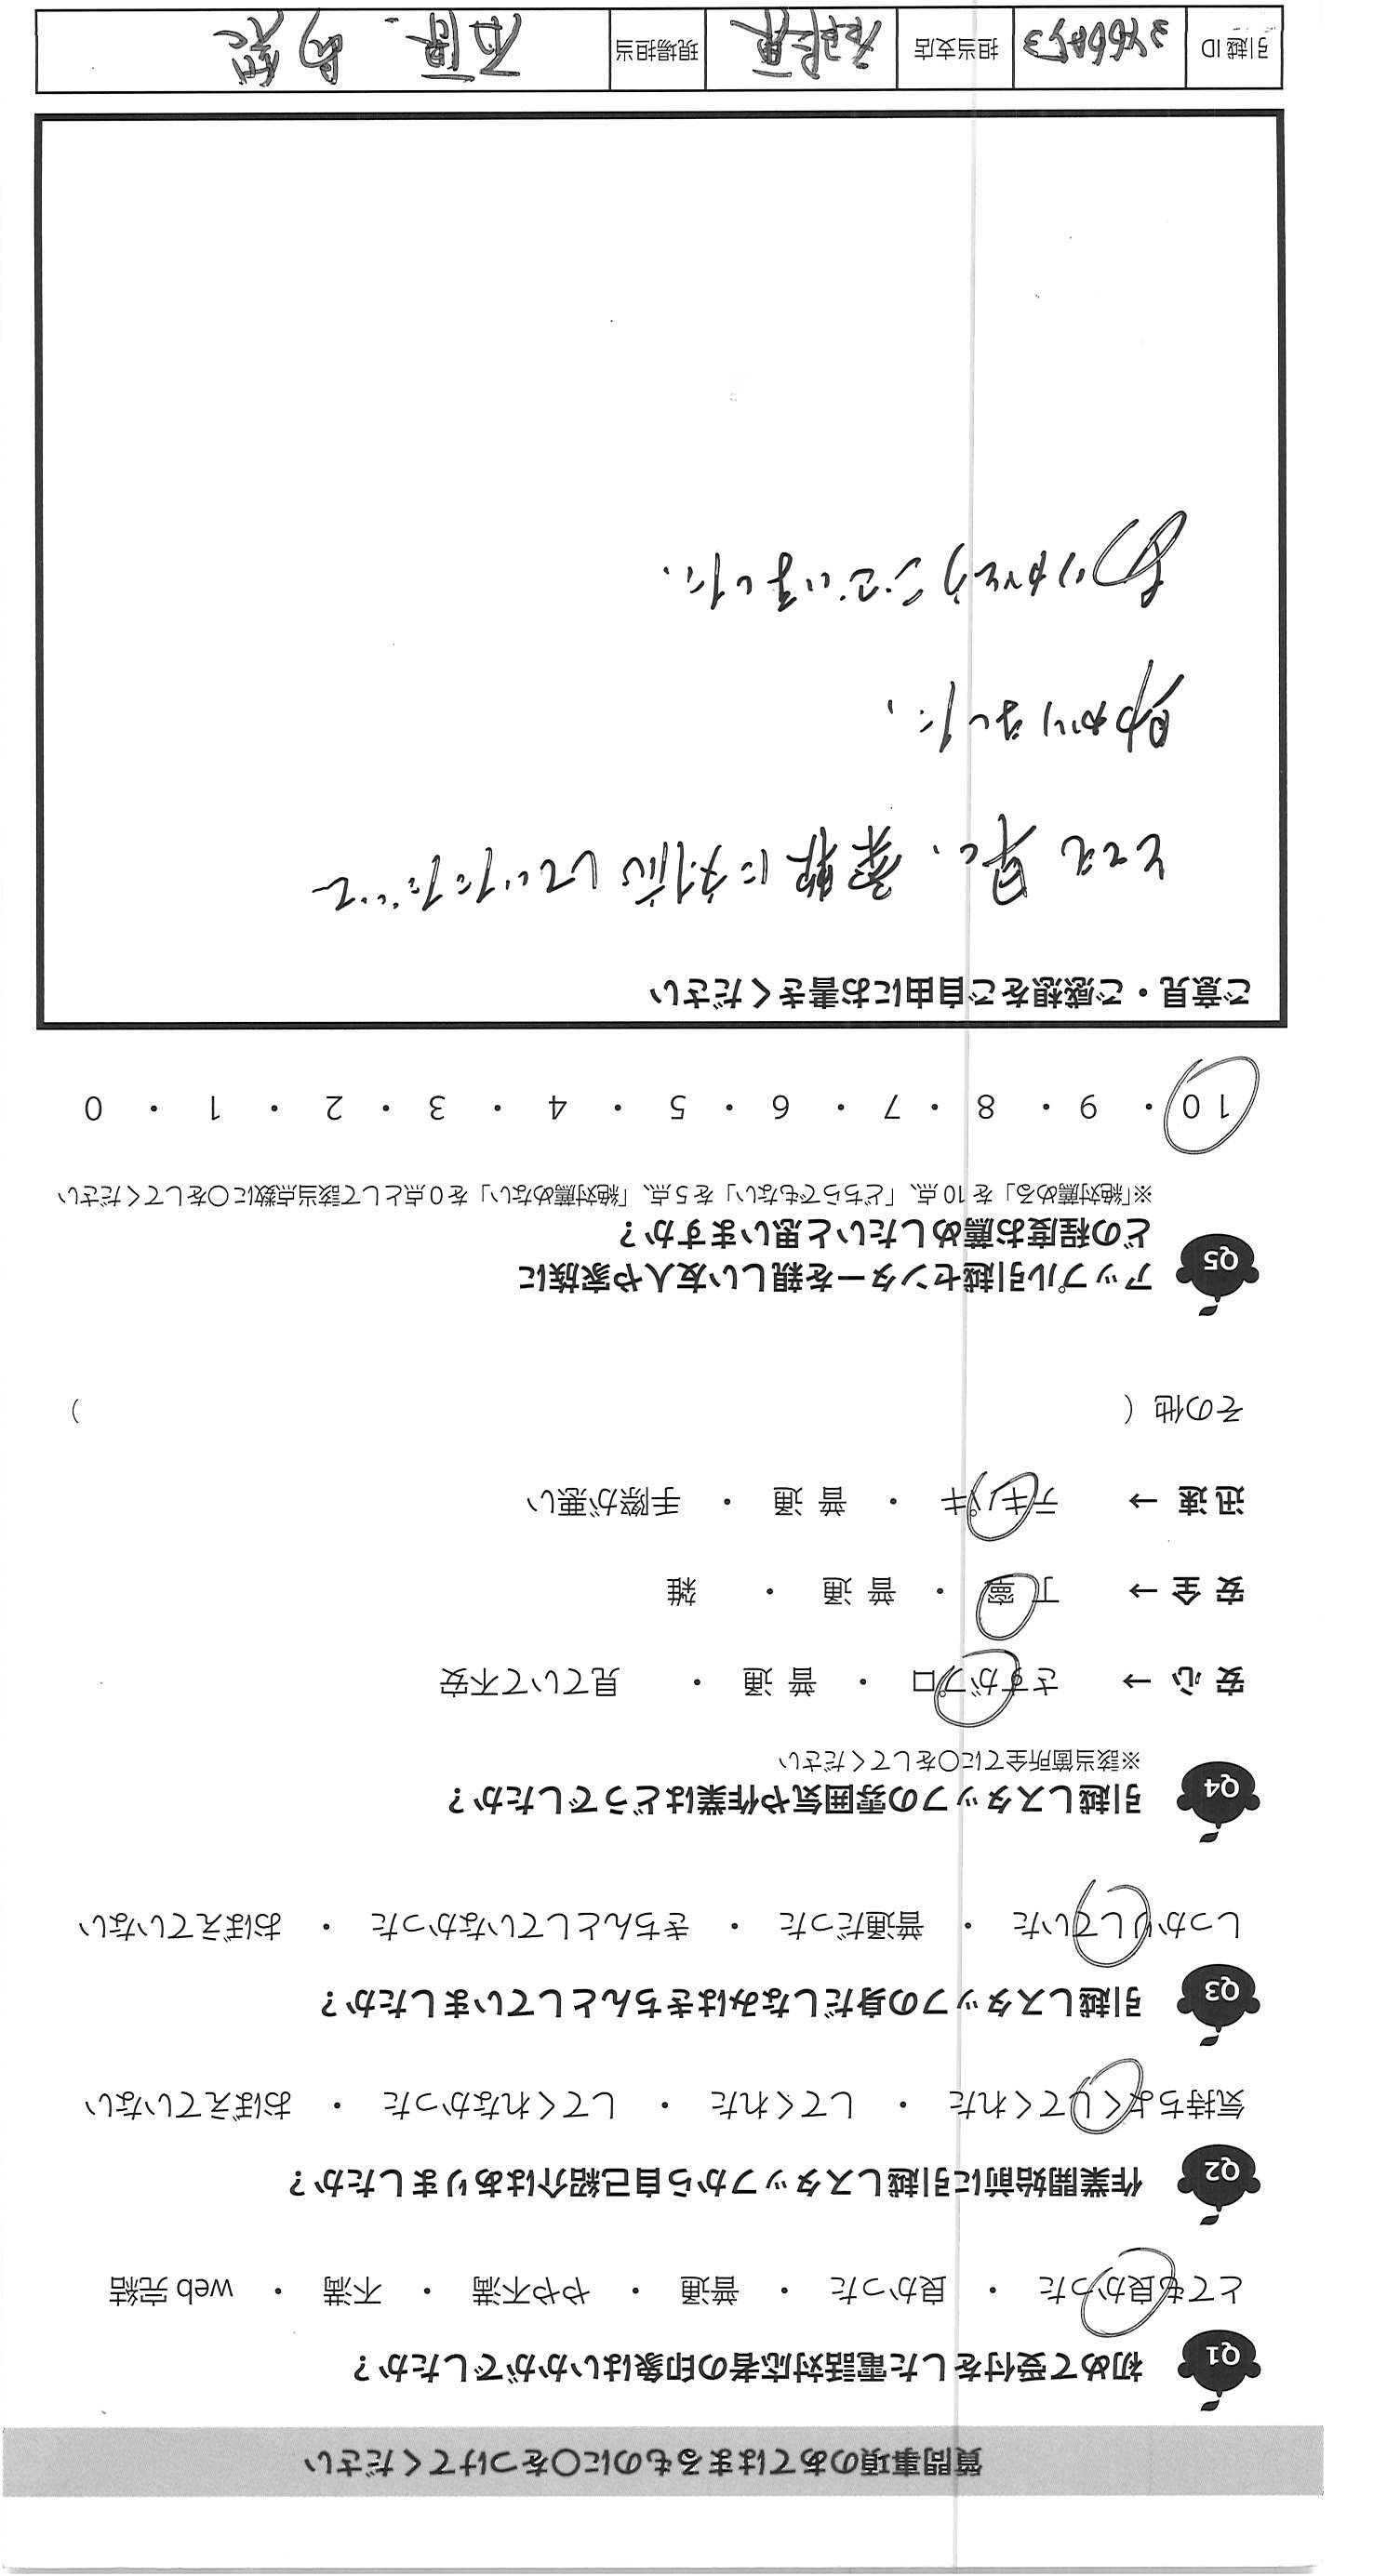 質問事項のあてはまるものに○をつけてください
Q1 初めて受付をした電話対応者の印象はいかがでしたか？
とても良かった ・ 良かった ・ 普通 ・ やや不満 ・ 不満 ・ web 完結
Q2 作業開始前に引越しスタッフから自己紹介はありましたか？
気持ちよくしてくれた ・ してくれた ・ してくれなかった ・ おぼえていない
Q3 引越しスタッフの身だしなみはきちんとしていましたか？
しっかりしていた ・ 普通だった ・ きちんとしていなかった ・ おぼえていない
Q4 引越しスタッフの雰囲気や作業はどうでしたか？
※該当箇所全てに○をしてください
安 心 → さすがプロ ・ 普 通 ・ 見ていて不安
安 全 → 丁 寧 ・ 普 通 ・ 雑
迅 速 → テキパキ ・ 普 通 ・ 手際が悪い
その他（ ）
Q5 アップル引越センターを親しい友人や家族に
どの程度お薦めしたいと思いますか？
※「絶対薦める」を 10 点、「どちらでもない」を 5 点、「絶対薦めない」を 0 点として該当点数に○をしてください
10 ・ 9 ・ 8 ・ 7 ・ 6 ・ 5 ・ 4 ・ 3 ・ 2 ・ 1 ・ 0
ご意見・ご感想をご自由にお書きください
とても早く、柔軟に対応していただいて
助かりました。
ありがとうございました。
引越 ID 担当支店 現場担当